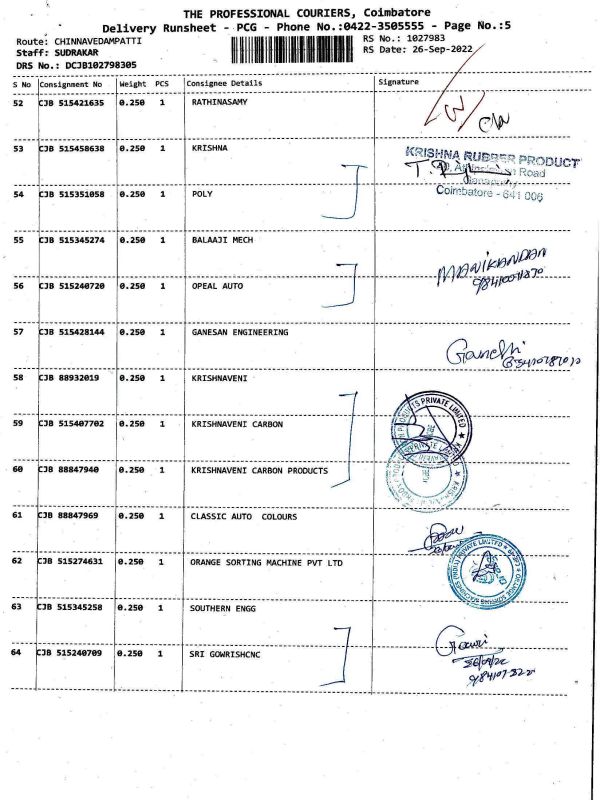 THE PROFESSIONAL COURIERS, Coimbatore
Delivery Runsheet - PCG - Phone No.:0422-3505555 - Page No.:5
Route: CHINNAVEDAMPATTI RS No.: 1027983
Staff: SUDRAKAR RS Date: 26-Sep-2022
DRS No.: DCJB102798305
S No Consignment No Weight PCS Consignee Details Signature
52 CJB 515421635 0.250 1 RATHINASAMY
53 CJB 515458638 0.250 1 KRISHNA
KRISHNA RUBBER PRODUCT
Road
Coimbatore - 641 006
54 CJB 515351058 0.250 1 POLY
55 CJB 515345274 0.250 1 BALAAJI MECH
MANIKANDAN
56 CJB 515240720 0.250 1 OPEAL AUTO
57 CJB 515428144 0.250 1 GANESAN ENGINEERING
58 CJB 88932019 0.250 1 KRISHNAVENI
PRODUCTS PRIVATE LIMITED
59 CJB 515407702 0.250 1 KRISHNAVENI CARBON
60 CJB 88847940 0.250 1 KRISHNAVENI CARBON PRODUCTS
61 CJB 88847969 0.250 1 CLASSIC AUTO COLOURS
62 CJB 515274631 0.250 1 ORANGE SORTING MACHINE PVT LTD
ORANGE SORTING MACHINES (INDIA) PRIVATE LIMITED
63 CJB 515345258 0.250 1 SOUTHERN ENGG
64 CJB 515240709 0.250 1 SRI GOWRISHCNC
Gowri
26/09/22